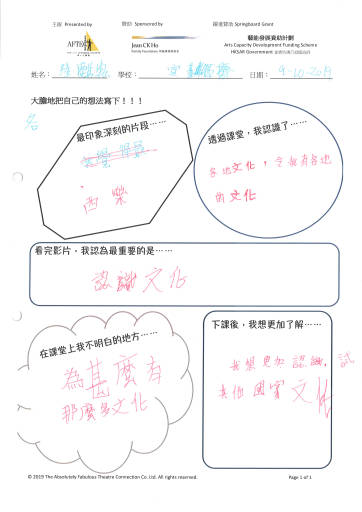 主辦 Presented by
贊助 Sponsored by
躍進資助 Springboard Grant
AFTEC
Jean CK Ho
Family Foundation
藝能發展資助計劃
Arts Capacity Development Funding Scheme
HKSAR Government
姓名：
學校：
日期： 9-10-2019
大膽地把自己的想法寫下！！！
名
最印象深刻的片段……
西樂
透過課堂，我認識了……
各地文化，令我有各地
的文化
看完影片，我認為最重要的是……
認識文化
在課堂上我不明白的地方……
為甚麼有
那麼多文化
下課後，我想更加了解……
我想更加認識，試
其他國家文化
© 2019 The Absolutely Fabulous Theatre Connection Co. Ltd. All rights reserved.
Page 1 of 1